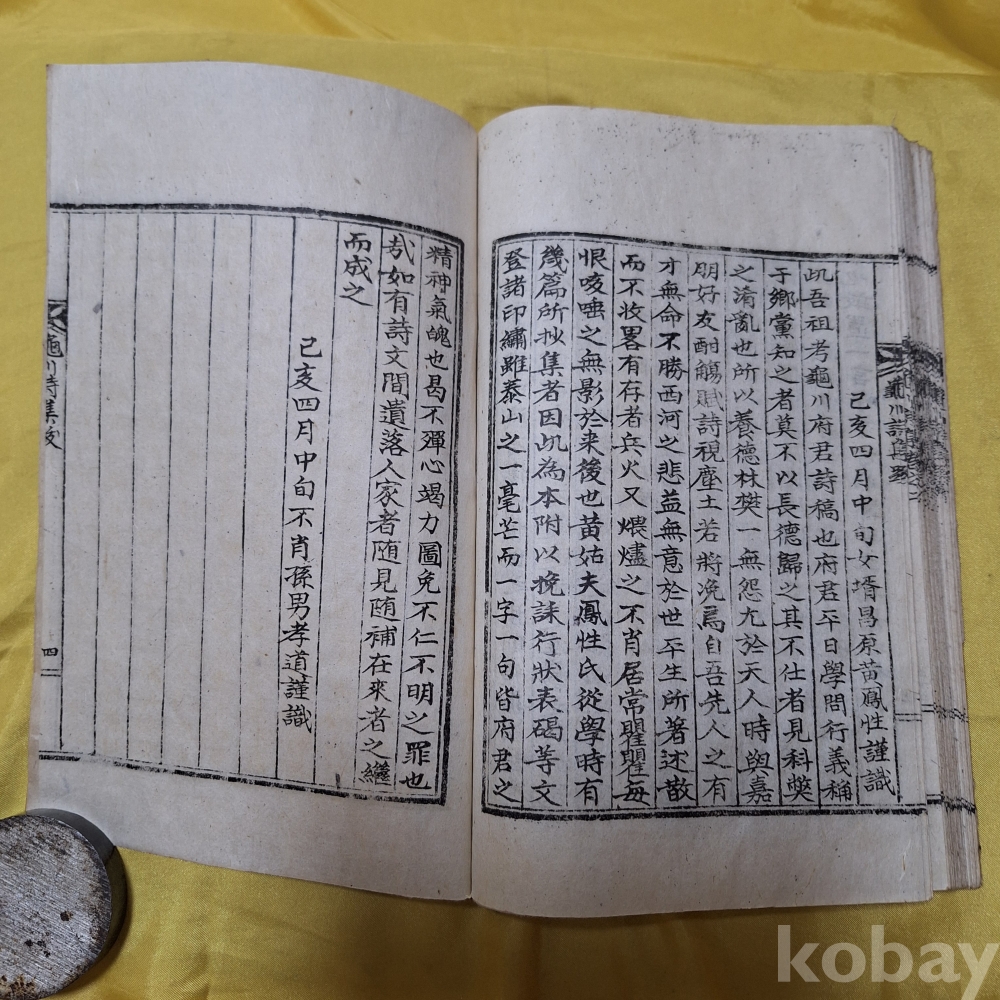 己亥四月中旬女壻昌原黃鳳性謹識
此吾祖考龜川府君詩稿也府君平日學問行義稱
于鄕黨知之者莫不以長德歸之其不仕者見科獘
之淆亂也所以養德林樊一無怨尤於天人時與嘉
朋好友酣觴賦詩視塵土若將浼焉自吾先人之有
才無命不勝西河之悲益無意於世平生所著述散
而不收畧有存者兵火又煨燼之不肖居常瞿瞿每
恨咳唾之無影於来後也黄姑夫鳳性氏從學時有
幾篇所抄集者因此為本附以挽誄行狀表碣等文
登諸印繡雖泰山之一毫芒而一字一句皆府君之
精神氣魄也曷不殫心竭力圖免不仁不明之罪也
㢤如有詩文間遺落人家者随見随補在來者之繼
而成之
己亥四月中旬不肖孫男孝道謹識
龜川詩集跋
四
kobay